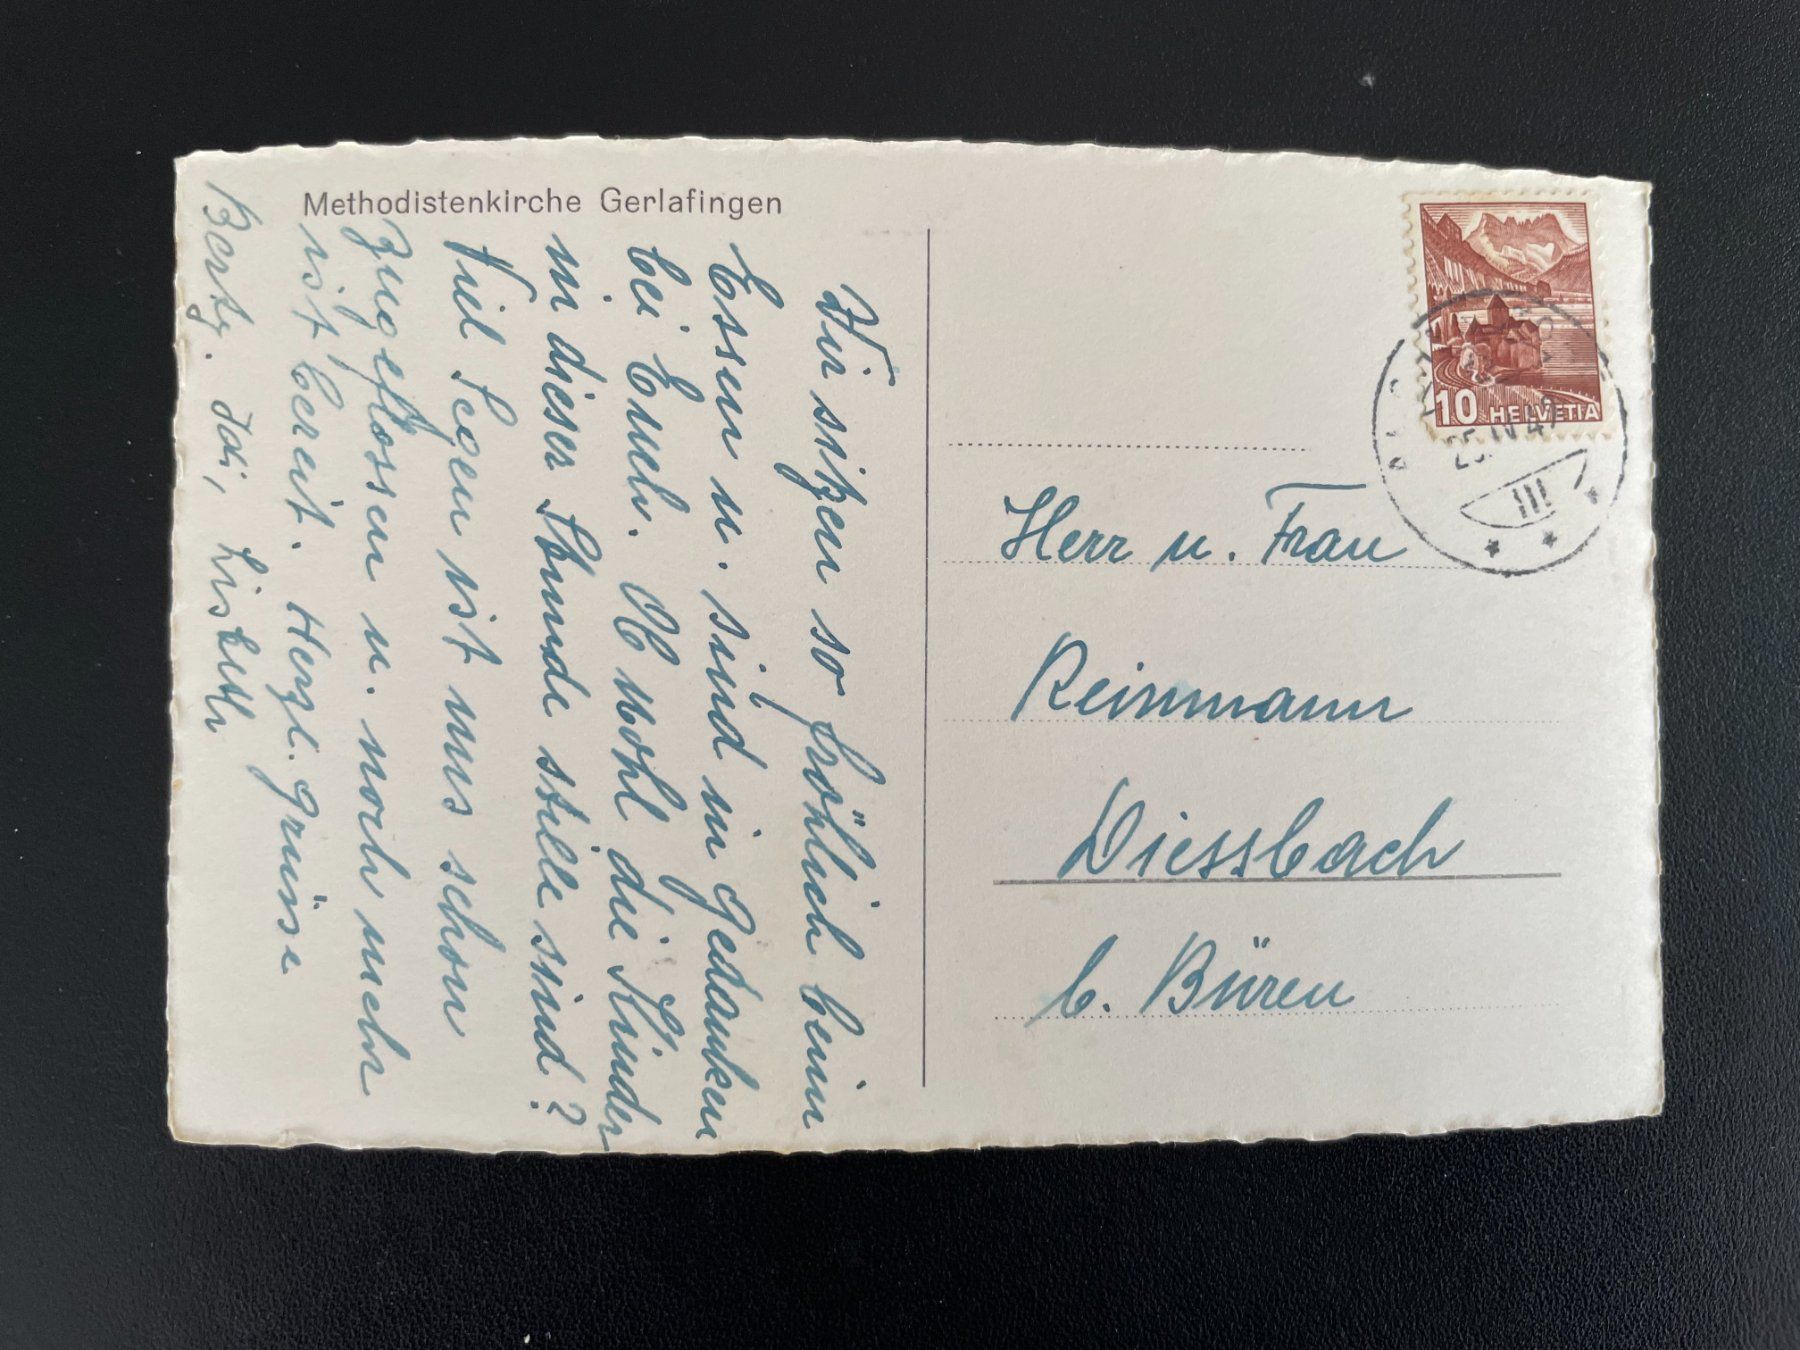 Methodistenkirche Gerlafingen
Wir sitzen so fröhlich beim
Essen u. sind in Gedanken
bei Euch. Ob wohl die Kinder
in dieser Stunde stille sind?
Viel Segen ist uns schon
zugeflossen u. noch mehr
ist bereit. Herzl. Grüsse
Berty. Idi, Lisbeth
10 HELVETIA
25. IV 49
III
Herr u. Frau
Reinmann
Diessbach
b. Büren